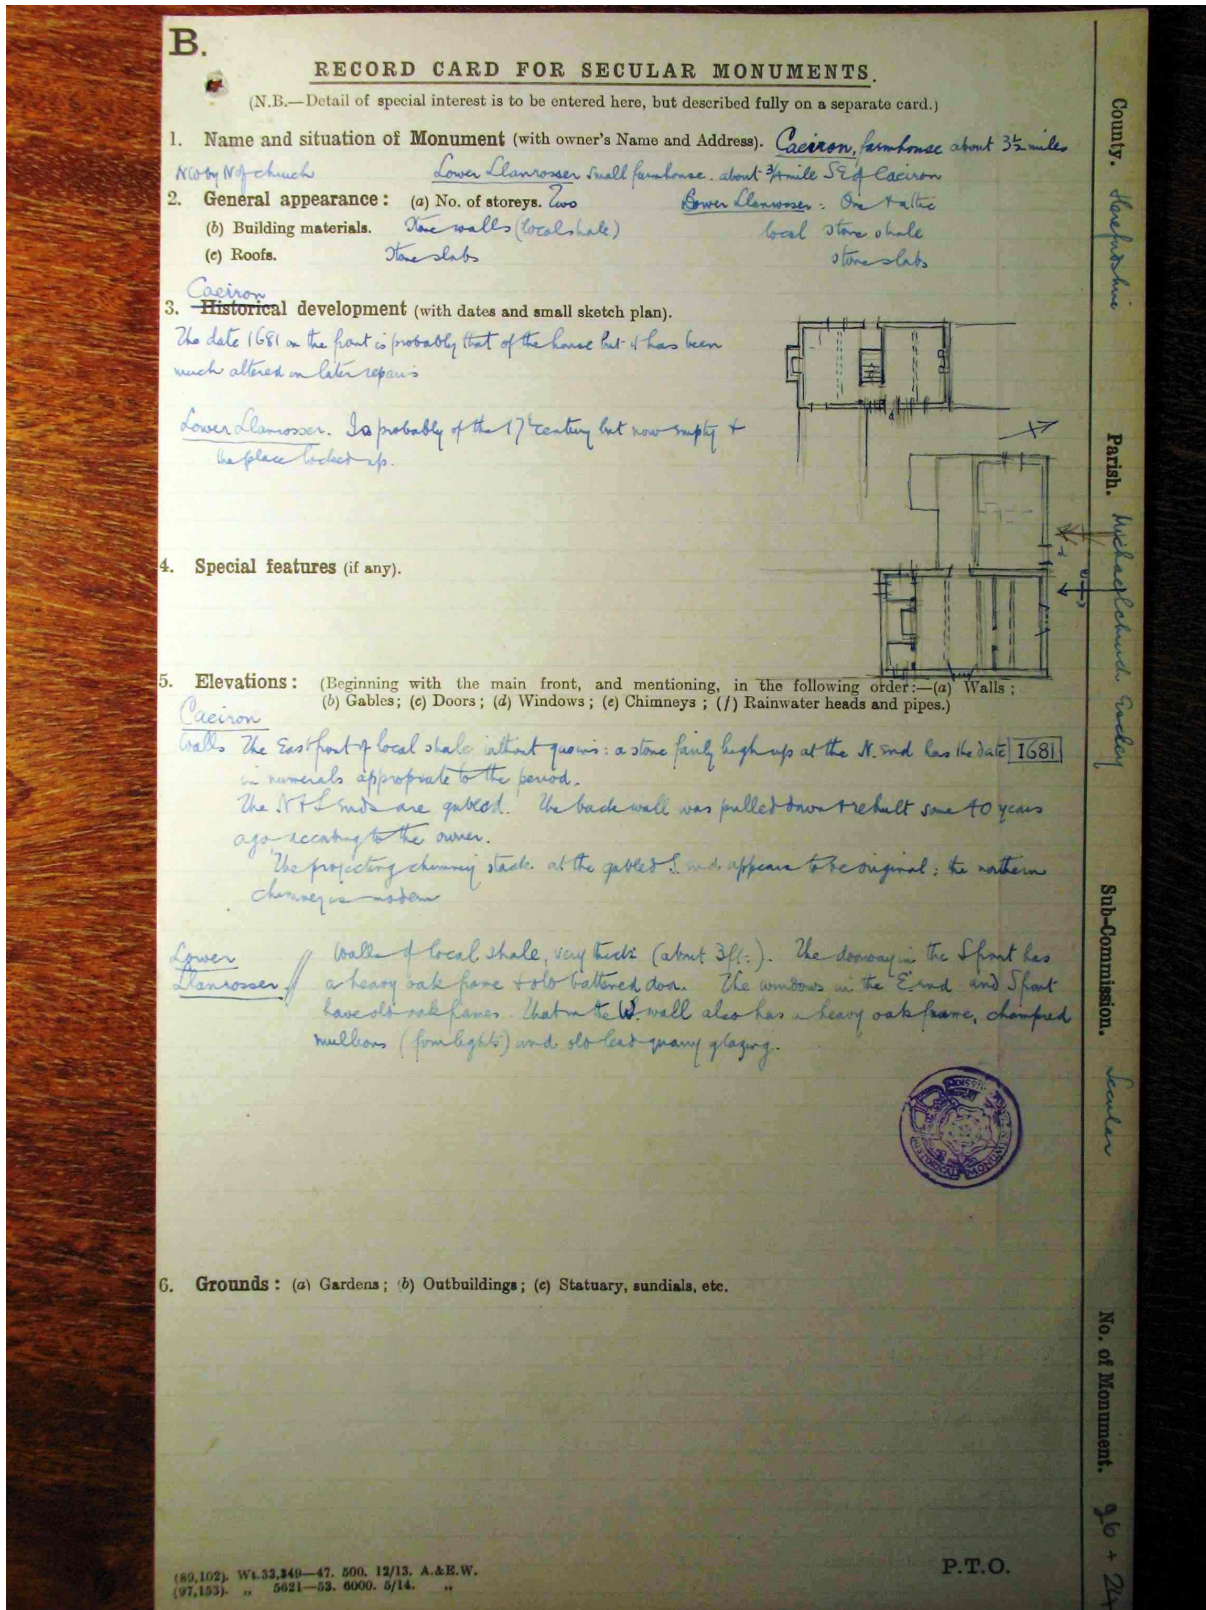 B.
RECORD CARD FOR SECULAR MONUMENTS.
(N.B.—Detail of special interest is to be entered here, but described fully on a separate card.)
1. Name and situation of Monument (with owner's Name and Address). Caeiron, farmhouse about 3½ miles
NW by N of church Lower Llanrosser small farmhouse. about ¾ mile SE of Caeiron
2. General appearance: (a) No. of storeys. Two Lower Llanrosser: One + attic
(b) Building materials. Stone walls (local shale) local stone shale
(c) Roofs. Stone slabs stone slabs
Caeiron
3. Historical development (with dates and small sketch plan).
The date 1681 on the front is probably that of the house but it has been
much altered in later repairs
Lower Llanrosser. Is probably of the 17th century but now empty +
the place locked up.
4. Special features (if any).
5. Elevations: (Beginning with the main front, and mentioning, in the following order:—(a) Walls;
(b) Gables; (c) Doors; (d) Windows; (e) Chimneys; (f) Rainwater heads and pipes.)
Caeiron
Walls The East front of local shale without quoins: a stone fairly high up at the N. end has the date 1681
in numerals appropriate to the period.
The N + S ends are gabled. The back wall was pulled down + rebuilt some 40 years
ago, according to the owner.
The projecting chimney stack at the gabled S. end appears to be original: the northern
chimney is modern
Lower Llanrosser // Walls of local shale, very thick (about 3ft.). The doorway in the S front has
a heavy oak frame + old battened door. The windows in the E. end and S front
have old oak frames. That in the W. wall also has a heavy oak frame, chamfred
mullions (four lights) and old lead quarry glazing.
HISTORICAL MONUMENTS
6. Grounds: (a) Gardens; (b) Outbuildings; (c) Statuary, sundials, etc.
(89,102). Wt.33,349—47. 500. 12/13. A.&E.W.
(97,153). „ 5621—53. 6000. 5/14. „
P.T.O.
County. Herefordshire
Parish. Michaelchurch Escley
Sub-Commission. Secular
No. of Monument. 26 + 24